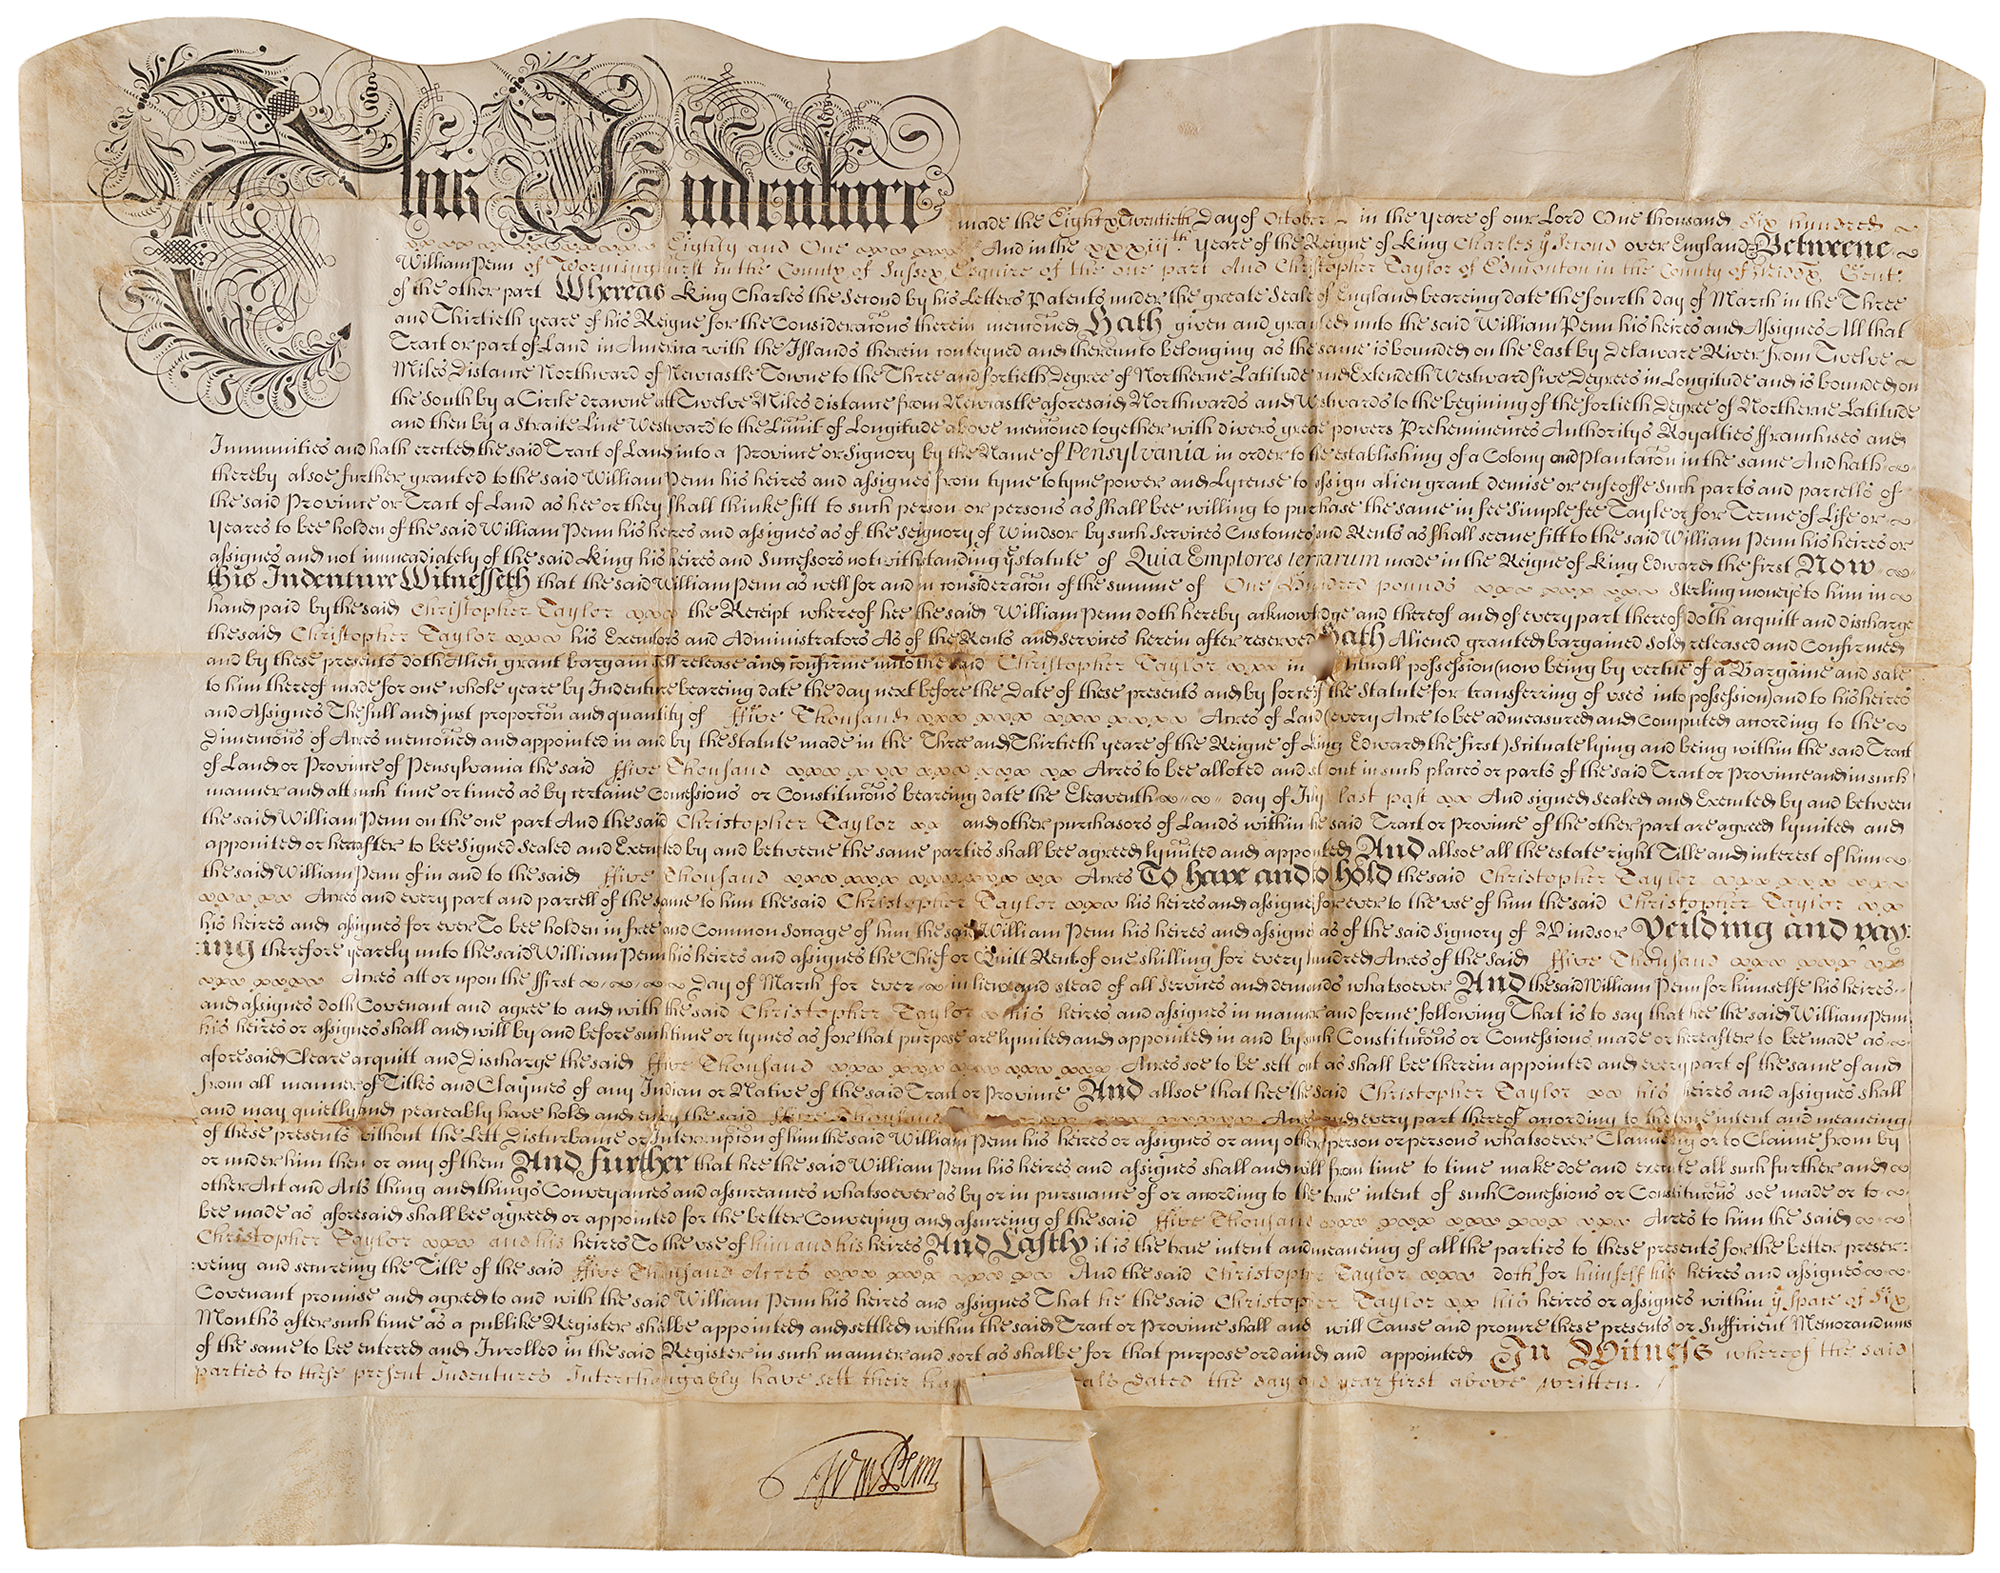 This Indenture made the Eight & Twentieth Day of October in the Yeare of our Lord One thousand Six hundred
Eighty and One And in the xxxiijth Yeare of the Reigne of King Charles ye Second over England &c Betweene
William Penn of Worminghurst in the County of Sussex Esquire of the one part And Christopher Taylor of Edmonton in the County of Middx Gent:
of the other part Whereas King Charles the Second by his Letters Patents under the greate Seale of England beareing date the fourth day of March in the Three
and Thirtieth yeare of his Reigne for the Consideracons therein menconed Hath given and graunted unto the said William Penn his heires and Assignes All that
Tract or part of Land in America with the Islands therein conteyned and thereunto belonging as the same is bounded on the East by Delaware River from Twelve
Miles Distance Northward of Newcastle Towne to the Three and fortieth Degree of Northerne Latitude and Extendeth Westward five Degrees in Longitude and is bounded on
the South by a Circle drawne att Twelve Miles distance from Newcastle aforesaid Northwards and Westwards to the begining of the fortieth Degree of Northerne Latitude
and then by a Straite Line Westward to the Limit of Longitude above menconed together with divers greate powers Preheminences Authoritys Royalties ffranchises and
Immunities and hath erected the said Tract of Land into a Province or Signory by the Name of Pensylvania in order to the establishing of a Colony and Plantacon in the same And hath
thereby alsoe further granted to the said William Penn his heires and assignes from tyme to tyme power and Lycense to assign alien grant demise or enfeoffe Such parts and parcells of
the said Province or Tract of Land as hee or they shall thinke fitt to such person or persons as shall bee willing to purchase the same in fee Simple fee Tayle or for Terme of Life or
Yeares to bee holden of the said William Penn his heires and assignes as of the Seignory of Windsor by such Services Customes and Rents as shall seeme fitt to the said William Penn his heires or
assignes and not immeadiately of the said King his heires and Successors notwithstanding ye Statute of Quia Emptores terrarum made in the Reigne of King Edward the first Now
this Indenture Witnesseth that the said William Penn as well for and in consideracon of the summe of One Hundred pounds Sterling moneys to him in
hand paid by the said Christopher Taylor the Receipt whereof hee the said William Penn doth hereby acknowledge and thereof and of every part thereof doth acquitt and discharge
the said Christopher Taylor his Executors and Administrators As of the Rents and services herein after reserved Hath Aliened granted bargained Sold released and Confirmed
and by these presents doth Alien grant bargain sell release and confirme unto the said Christopher Taylor in actuall possession (now being by vertue of a Bargaine and sale
to him thereof made for one whole yeare by Indenture beareing date the day next before the Date of these presents and by force of the Statute for transferring of uses into possession) and to his heires
and Assignes The full and just proporcon and quantity of ffive Thousand Acres of Land (every Acre to bee admeasured and Computed according to the
Dimencons of Acres menconed and appointed in and by the Statute made in the Three and Thirtieth yeare of the Reigne of King Edward the first) Scituate lying and being within the said Tract
of Land or Province of Pensylvania the said ffive Thousand Acres to bee alloted and sett out in such places or parts of the said Tract or Province and in such
manner and att such time or times as by certaine Concessions or Constitucons beareing date the Eleaventh day of July last past And signed Sealed and Executed by and between
the said William Penn on the one part And the said Christopher Taylor and other purchasors of Lands within the said Tract or Province of the other part are agreed lymited and
appointed or hereafter to bee Signed Sealed and Executed by and betweene the same parties shall bee agreed lymited and appointed And allsoe all the estate right Title and interest of him
the said William Penn of in and to the said ffive Thousand Acres To have and to hold the said Christopher Taylor
Acres and every part and parcell of the same to him the said Christopher Taylor his heires and assignes for ever to the use of him the said Christopher Taylor
his heires and assignes for ever To bee holden in free and Common Soccage of him the said William Penn his heires and assignes as of the said Signory of Windsor Yeilding and pay:
:ing therefore yearely unto the said William Penn his heires and assignes the Chief or Quitt Rent of one shilling for every hundred Acres of the said ffive Thousand
Acres att or upon the ffirst Day of March for ever in lieu and stead of all Services and demands whatsoever And the said William Penn for himselfe his heires
and assignes doth Covenant and agree to and with the said Christopher Taylor his heires and assignes in manner and forme following That is to say that hee the said William Penn
his heires or assignes shall and will by and before such time or tymes as for that purpose are lymited and appointed in and by such Constitucons or Concessions made or hereafter to bee made as
aforesaid Cleare acquitt and Discharge the said ffive Thousand Acres soe to be sett out as shall bee therein appointed and every part of the same of and
from all manner of Titles and Claymes of any Indian or Native of the said Tract or Province And allsoe that hee the said Christopher Taylor his heires and assignes shall
and may quietly and peaceably have hold and enjoy the said ffive Thousand Acres and every part thereof according to the true intent and meaneing
of these presents without the Lett Disturbance or Interrupcon of him the said William Penn his heires or assignes or any other person or persons whatsoever Claimeing or to Claime from by
or under him them or any of them And further that hee the said William Penn his heires and assignes shall and will from time to time make doe and execute all such further and
other Act and Acts thing and things Conveyances and assureances whatsoever as by or in pursuance of or according to the true intent of such Concessions or Constitucons soe made or to
bee made as aforesaid shall bee agreed or appointed for the better Conveying and assureing of the said ffive Thousand Acres to him the said
Christopher Taylor and his heires To the use of him and his heires And Lastly it is the true intent and meaneing of all the parties to these presents for the better preser:
:veing and secureing the Title of the said ffive Thousand Acres And the said Christopher Taylor doth for himself his heires and assignes
Covenant promise and agree to and with the said William Penn his heires and assignes That he the said Christopher Taylor his heires or assignes within ye space of Six
Months after such time as a publike Register shalbe appointed and settled within the said Tract or Province shall and will Cause and procure these presents or Sufficient Memorandums
of the same to bee entered and Inrolled in the said Register in such manner and sort as shalbe for that purpose ordained and appointed In Witness whereof the said
parties to these present Indentures Interchangably have sett their dated the day and year first above written.
Wm Penn